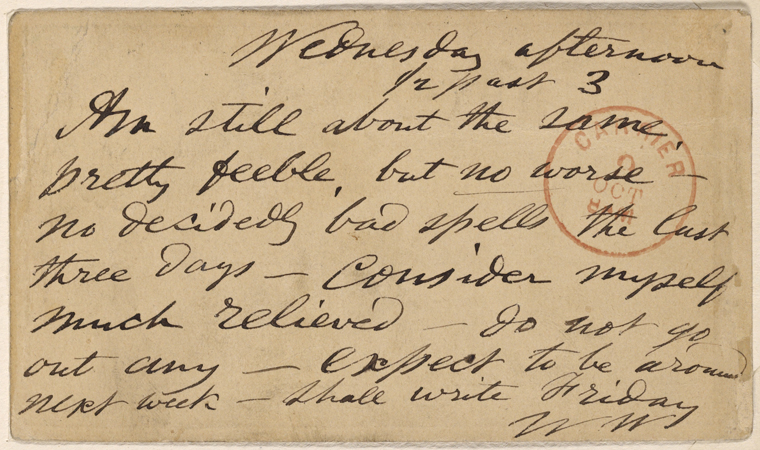 Wednesday afternoon
1/2 past 3
Am still about the same,
pretty feeble, but no worse —
no decidedly bad spells the last
three days — Consider myself
much relieved — do not go
out any — expect to be around
next week — shall write Friday
W W
CARRIER
9
OCT
8 AM